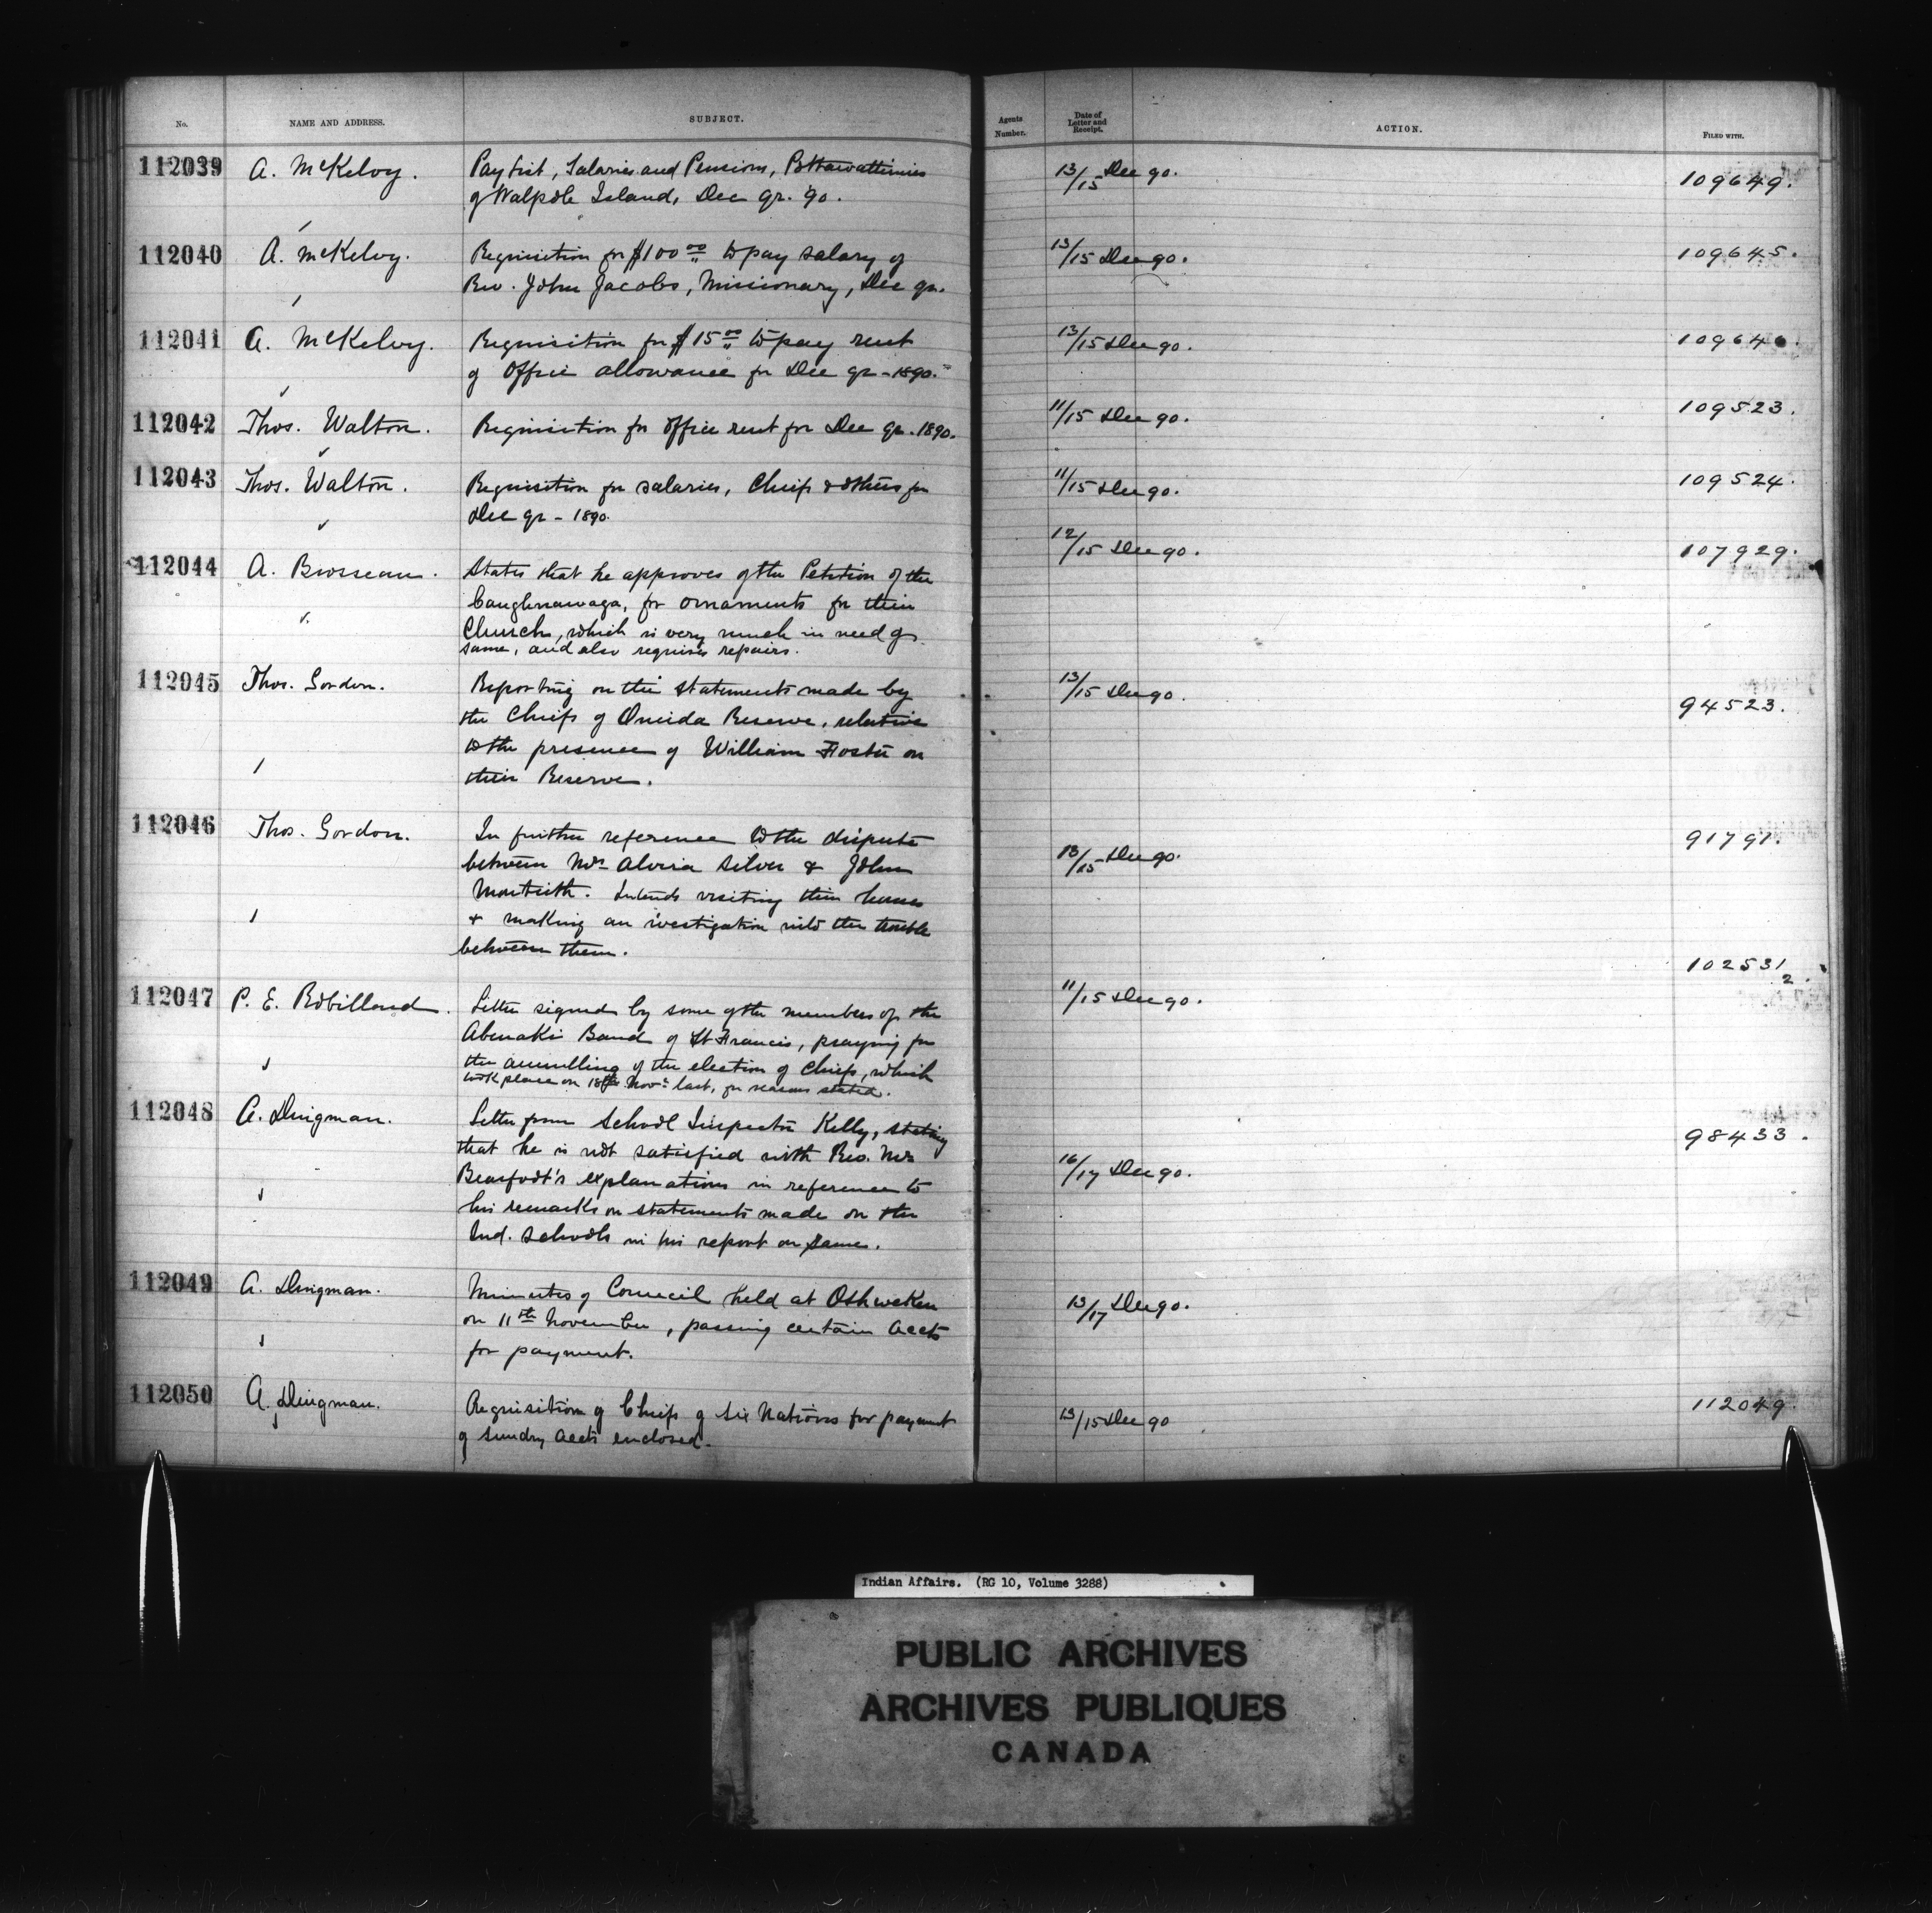 No. NAME AND ADDRESS. SUBJECT. Agents Number. Date of Letter and Receipt. ACTION. FILED WITH.
112039 A. McKelvy. Pay list, Salaries and Pensions, Pottawattimies 13/15 Dec 90. 109649.
of Walpole Island, Dec qr. '90.
112040 A. McKelvy. Requisition for $100 00 to pay salary of 13/15 Dec 90. 109645.
Rev. John Jacobs, Missionary, Dec qr.
112041 A. McKelvy. Requisition for $15 00 to pay rent 13/15 Dec 90. 109640.
of Office allowance for Dec qr - 1890.
112042 Thos. Walton. Requisition for office rent for Dec qr. 1890. 11/15 Dec 90. 109523.
112043 Thos. Walton. Requisition for salaries, Chiefs & others for 11/15 Dec 90. 109524.
Dec qr - 1890.
112044 A. Brosseau. States that he approves of the Petition of the 12/15 Dec 90. 107929.
Caughnawaga, for ornaments for their
Church, which is very much in need of
same, and also requires repairs.
112045 Thos. Gordon. Reporting on the statements made by 13/15 Dec 90. 94523.
the Chiefs of Oneida Reserve, relative
to the presence of William Foster on
their Reserve.
112046 Thos. Gordon. In further reference to the dispute 13/15 Dec 90. 91791.
between Mrs Alvira Silver & John
Monteith. Intends visiting their homes
& making an ivestigation into the trouble
between them.
112047 P. E. Robillard. Letter signed by some of the members of the 11/15 Dec 90. 102531/2.
Abenakis Band of St Francis, praying for
the annulling of the election of Chiefs, which
took place on 18th Novr last, for reasons stated.
112048 A. Dingman. Letter from School Inspector Kelly, stating 16/17 Dec 90. 98433.
that he is not satisfied with Rev. Mr
Bearfoot's explanations in reference to
his remarks on statements made on the
Ind. Schools in his report on same.
112049 A. Dingman. Minutes of Council held at Oshweken 13/17 Dec 90.
on 11th November, passing certain accts
for payment.
112050 A. Dingman. Requisition of Chiefs of Six Nations for payment 13/15 Dec 90 112049.
of sundry accts enclosed.
Indian Affairs. (RG 10, Volume 3288)
PUBLIC ARCHIVES
ARCHIVES PUBLIQUES
CANADA